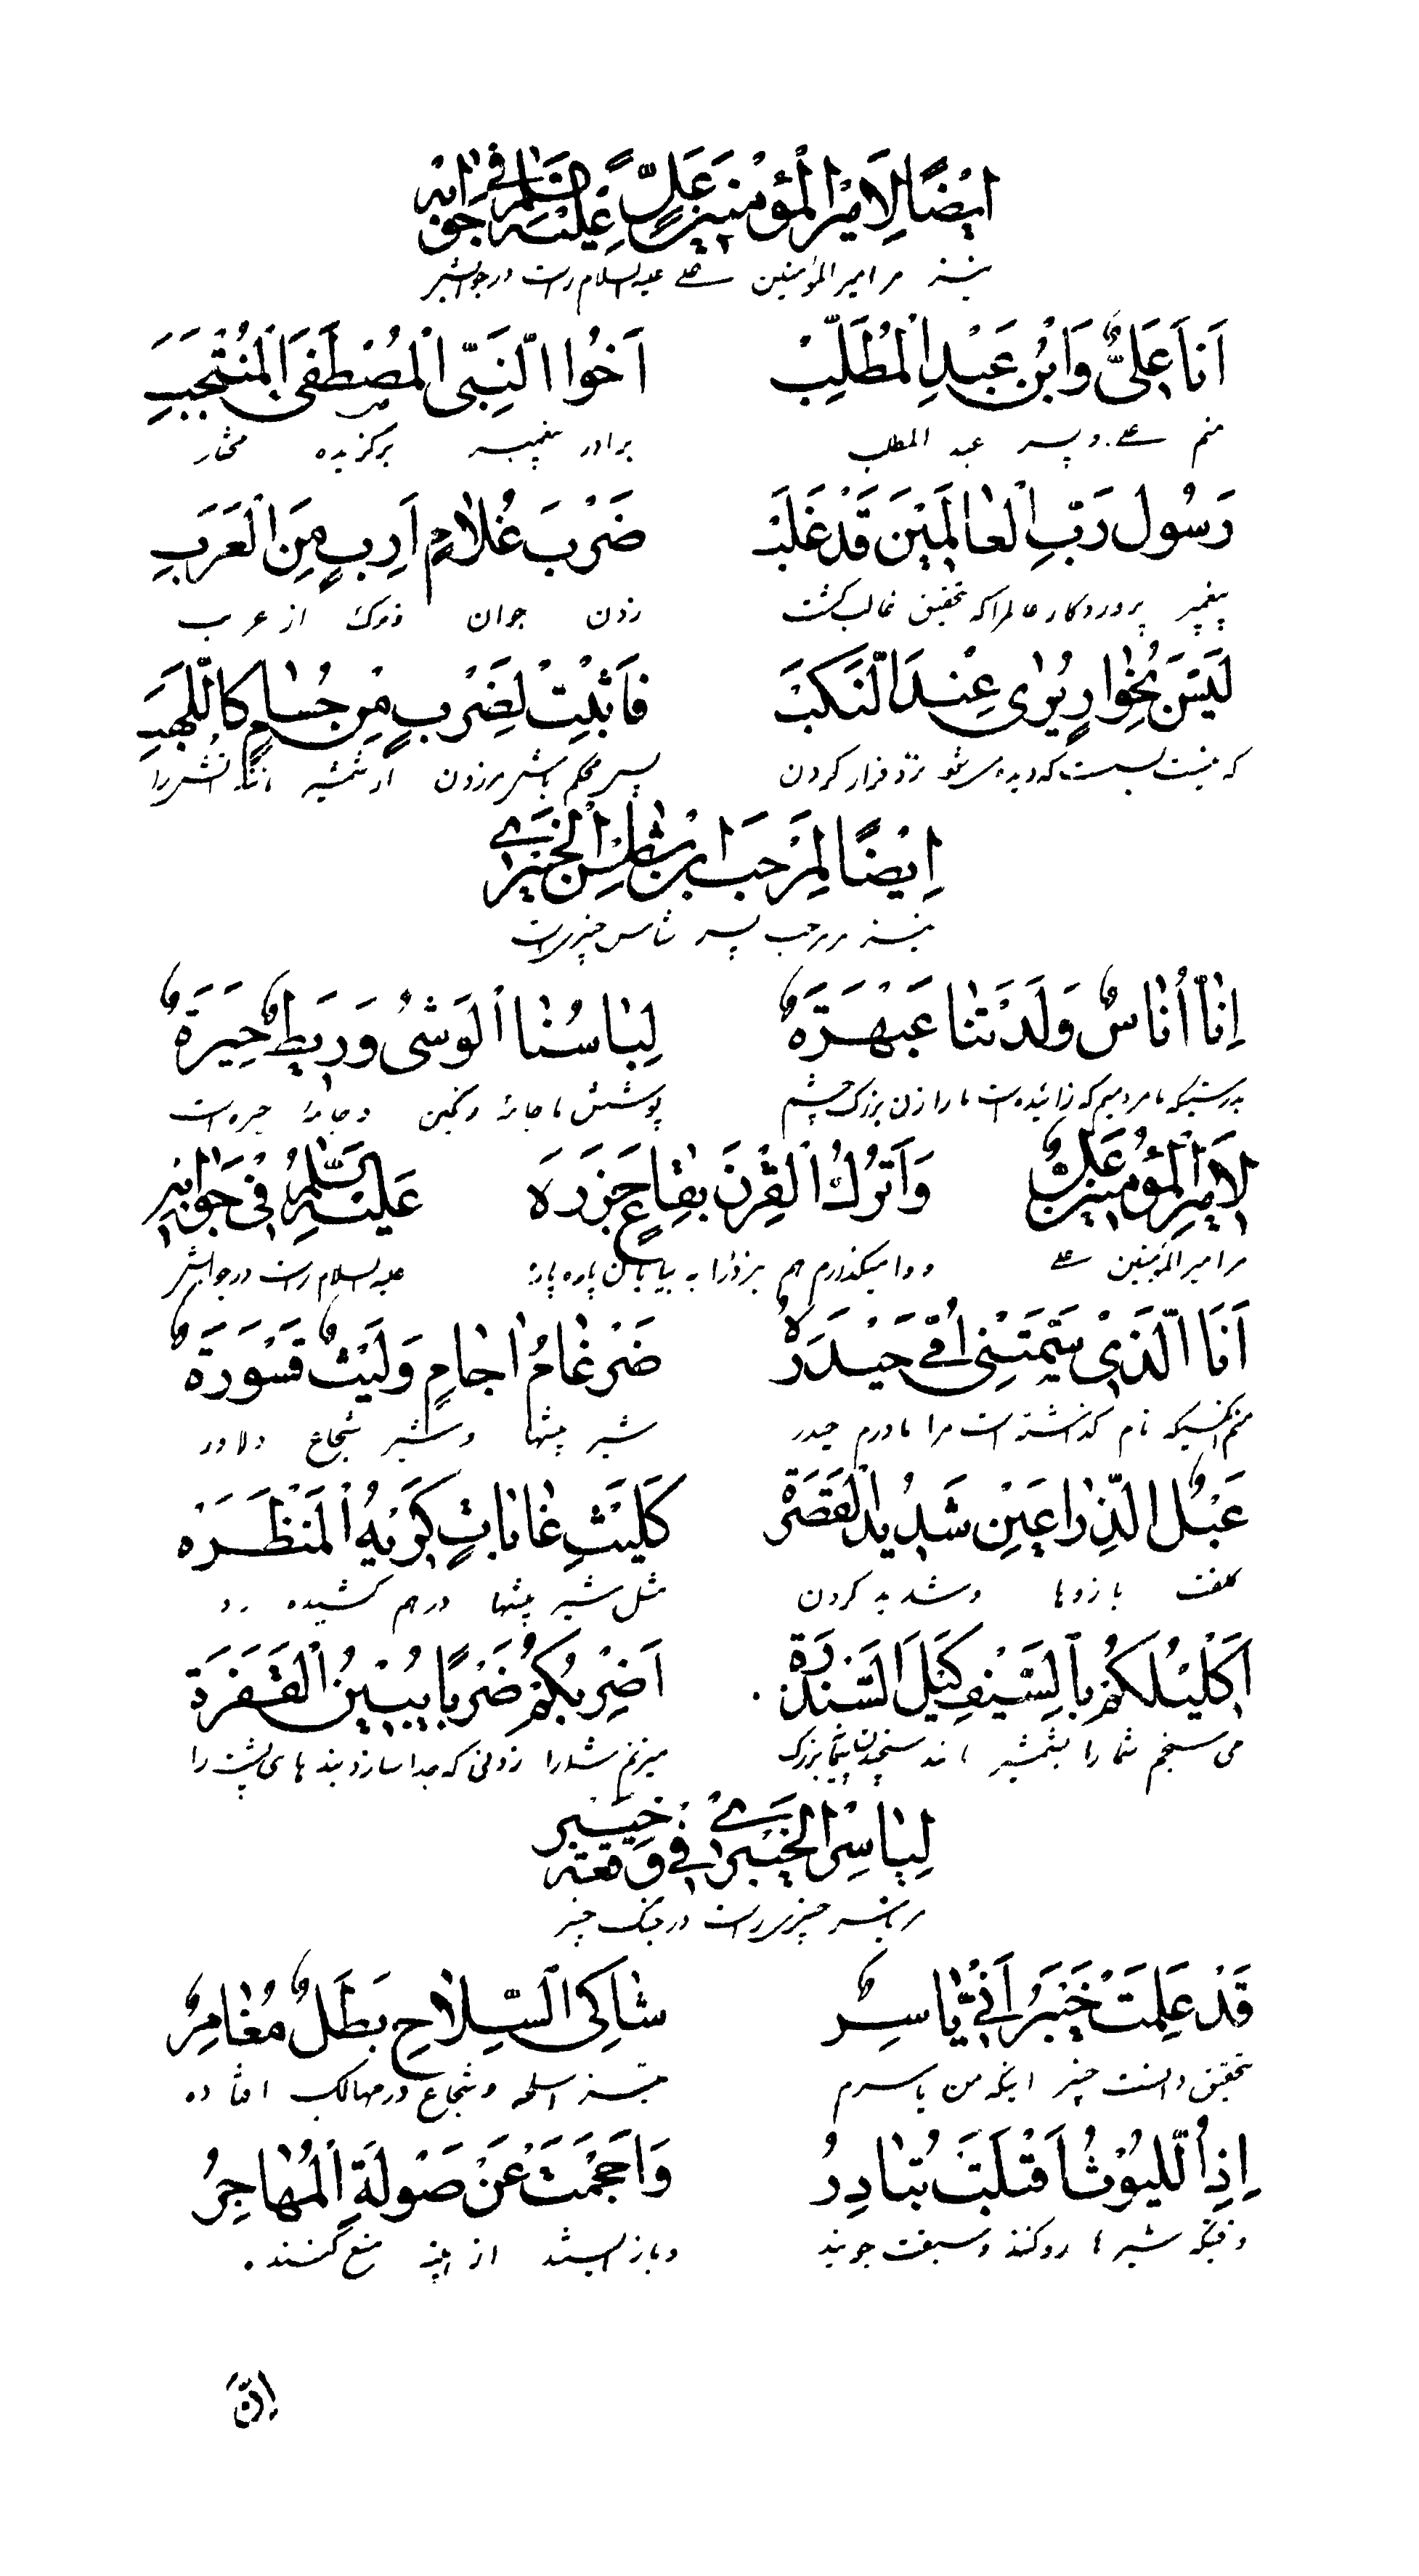 اَيْضًا لِاَمِيْرِ الْمُؤْمِنِيْنَ عَلِيٍّ عَلَيْهِ السَّلَامُ فِي جَوَابِهِ
نیز مر امیر المؤمنین علی علیه السلام راست در جوابش
اَنَا عَلِيٌّ وَابْنُ عَبْدِ الْمُطَّلِبْ اَخُوا النَّبِّى الْمُصْطَفَى الْمُنْتَجَبِ
منم علی و پسر عبد المطلب برادر پیغمبر برگزیده مختار
رَسُول رَبِّ الْعَالَمِيْنَ قَدْ غَلَبْ ضَرْبَ غُلَامٍ اَرِبٍ مِنَ الْعَرَبِ
پیغمبر پروردگار عالم را که بتحقیق غالب گشت زدن جوان زیرک از عرب
لَيْسَ بِخَوَارٍ يُرٰى عِنْدَ النَّكَبْ فَاثْبِتْ لِضَرْبٍ مِنْ حُسَامٍ كَاللَّهَبِ
که نیست سست که دیده می شود نزد فرار کردن پس محکم باش بر زدن از شمشیر مانند آتش را
اِيْضًا لِمَرْحَبَ ابْنِ شَاسِ الْخَيْبَرِي
نیز مر مرحب پسر شاس خیبری راست
اِنَّا اُنَاسٌ وَلَدَتْنَا عَبْهَرَةٌ لِبَاسُنَا الْوَشْىُ وَرَيْطٌ حِبَرَةٌ
بدرستیکه ما مردمیم که زائیده است ما را زن بزرگ چشم پوشش ما جامۀ رنگین و جامۀ حبره است
لِاَمِيْرِ الْمُؤْمِنِيْنَ عَلِيٍّ وَاَتْرُكُ الْقِرْنَ بِقَاعٍ جَزَرَهْ عَلَيْهِ السَّلَامُ فِيْ جَوَابِهِ
مر امیر المؤمنین علی و وا میگذارم هم نبرد را به بیابان پاره پاره علیه السلام راست در جوابش
اَنَا الَّذِيْ سَمَّتْنِي اُمِّي حَيْدَرَةٌ ضَرْغَامُ اٰجَامٍ وَلَيْثٌ قَسْوَرَةٌ
منم آنکسیکه نام گذاشته است مرا مادرم حیدر شیر بیشها و شیر شجاع دلاور
عَبْلُ الذِّرَاعَيْنِ شَدِيْدُ الْقَصَرَةْ كَلَيْثِ غَابَاتٍ كَرِيْهِ الْمَنْظَرَهْ
کلفت بازوها و شدید گردن مثل شیر بیشها درهم کشیده رو
اَكِلْيُلكُمْ بِالسَّيْفِ كَيْلَ السَّنْدَرَةِ اَضْرِبُكُمْ ضَرْبًا يُبِيْنُ الْفَقَرَةَ
می سنجم شما را بشمشیر مانند سنجیدن پیمانۀ بزرگ میزنم شما را زدنی که جدا سازد بندهای پشت را
لِيَاسِرِ الْخَيْبَرِيِّ فِيْ وَقْعَةِ خَيْبَرْ
مر یاسر خیبری راست در جنگ خیبر
قَدْ عَلِمَتْ خَيْبَرُ اَنِّيْ يَاسِرٌ شَاكِى السِّلَاحِ بَطَلٌ مُغَامِرٌ
بتحقیق دانست خیبر اینکه من یاسرم تیز اسلحه و شجاع در مهالک افتاده
اِذِ اللُّيُوْثُ اَقْبَلَتْ تُبَادِرُ وَاَحْجَمَتْ عَنْ صَوْلَةِ الْمُهَاجِرُ
وقتیکه شیرها رو کنند و سبقت جویند و باز ایستند از منع کنند
اِنَّ